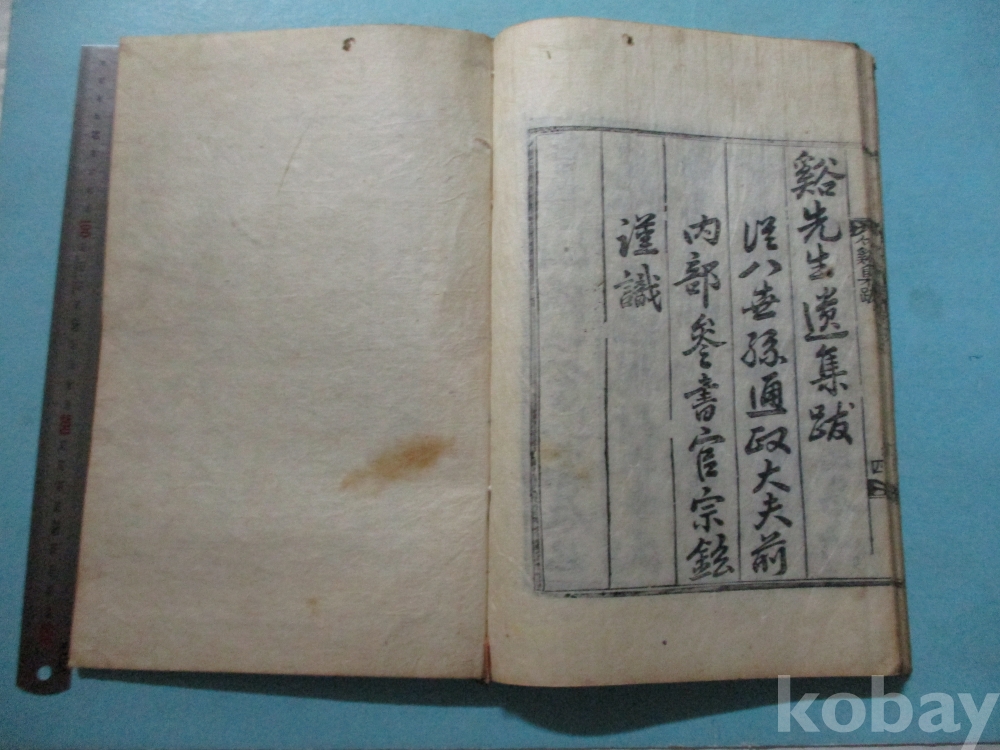 谿先生遺集跋
從八世孫通政大夫前
內部參書官宗鉉
謹識
四
kobay